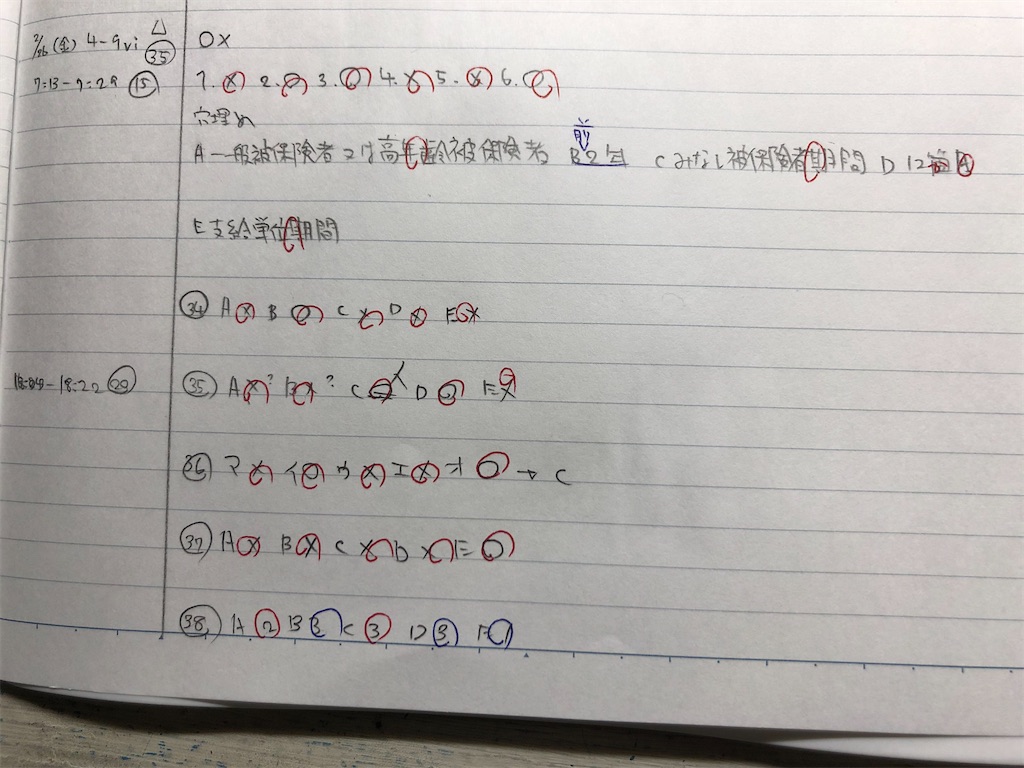 2/26(金) 4-9vi △ ㉟ OX
7:13-7:28 ⑮ 1. × 2. ○ 3. ○ 4. × 5. × 6. ○
穴埋め
前
A 一般被保険者又は高年齢被保険者 B 2年 C みなし被保険者期間 D 12
E 支給単位期間
㉞ A × B ○ C × D × E ×
18:22 ⑳ ㉟ A ×? B ×? C D ○ E ×
㊱ ア × イ ○ ウ × エ × オ ○ → C
㊲ A × B × C × D × E ○
㊳ A 2 B 3 C 3 D 3 E 1